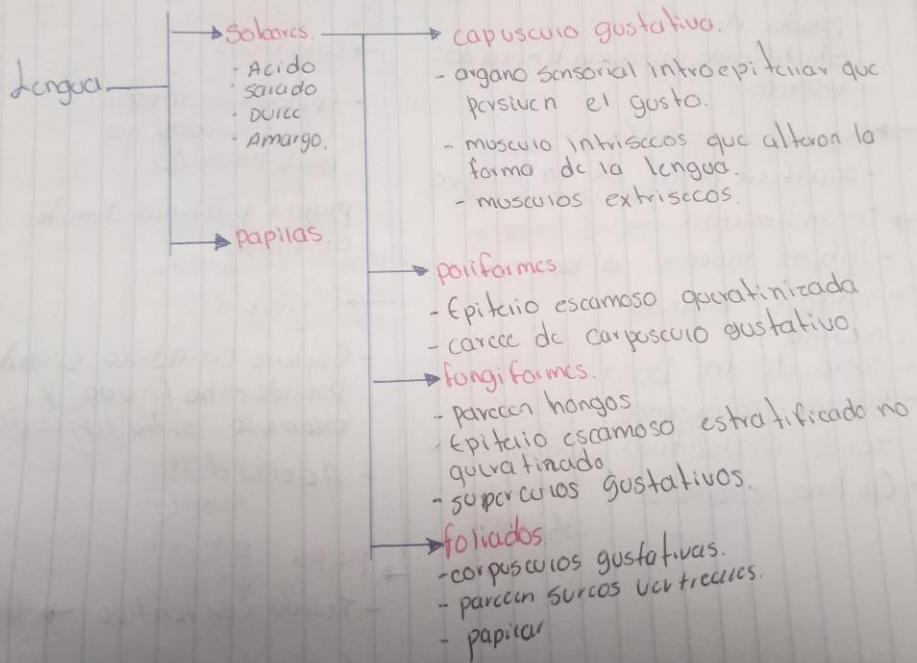 Lengua
Sabores
· Acido
· Salado
· Dulce
· Amargo.
Papilas
capusculo gustativo.
- organo sensorial introepitelial que
persiven el gusto.
- musculo intriseccos que alteran la
forma de la lengua.
- musculos extriseccos.
poliformes
- Epitelio escamoso queratinizada
- carece de carpusculo gustativo.
fungiformes.
- parecen hongos
- Epitelio escamoso estratificado no
queratinado
- gustativos.
foliados
- corpusculos gustativas.
- parecen surcos
- papilar